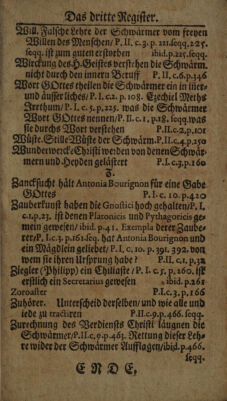 Das dritte Register.
Will. Falsche Lehre der Schwärmer vom freyen
Willen des Menschen/ P. II, c. 3. p. 221. seqq. 225.
seqq. ist zum guten erstorben ibid. p. 225. seqq.
Wirckung des H. Geistes verstehen die Schwärm.
nicht durch den innern Beruff P. II, c. 6. p. 146
Wort GOttes theilen die Schwärmer ein in iñer-
und äusserliches/ P. I, c. 2. p. 108. Ezechiel Meths
Irrthum/ P. I. c. 5. p. 225. was die Schwärmer
Wort GOttes nennen/ P. II. c. 1. p. 18. seqq. was
sie durchs Wort verstehen P. II. c. 2, p. 101
Wüste. Stille Wüste der Schwärm. P. II. c. 4. p. 130
Wunderwercke Christi werden von denen Schwär-
mern und Heyden gelästert P. I. c. 3. p. 160
Z.
Zancksucht hält Antonia Bourignon für eine Gabe
GOttes P. I. c. 10. p. 420
Zauberkunst haben die Gnostici hoch gehalten/ P. I.
c. 1. p. 23. ist denen Platonicis und Pythagoricis ge-
mein gewesen/ ibid. p. 41. Exempla derer Zaube-
rer/ P. I. c. 3. p. 161. seq. hat Antonia Bourignon und
ein Mägdlein geliebet/ P. I, c. 10. p. 391. 392. von
wem sie ihren Ursprung habe? P. II, c. 1. p. 32
Ziegler (Philipp) ein Chiliaste/ P. I. c. 5, p. 260. ist
erstlich ein Secretarius gewesen ibid. p. 261
Zoroaster P. I. c. 3, p. 166
Zuhörer. Unterscheid derselben/ und wie alle und
iede zu tractiren P. II. c. 9. p. 466. seqq.
Zurechnung des Verdiensts Christi läugnen die
Schwärmer/ P. II. c. 9. p. 463. Rettung dieser Leh-
re wider der Schwärmer Aufflagen/ ibid. p. 466.
seqq.
ENDE,